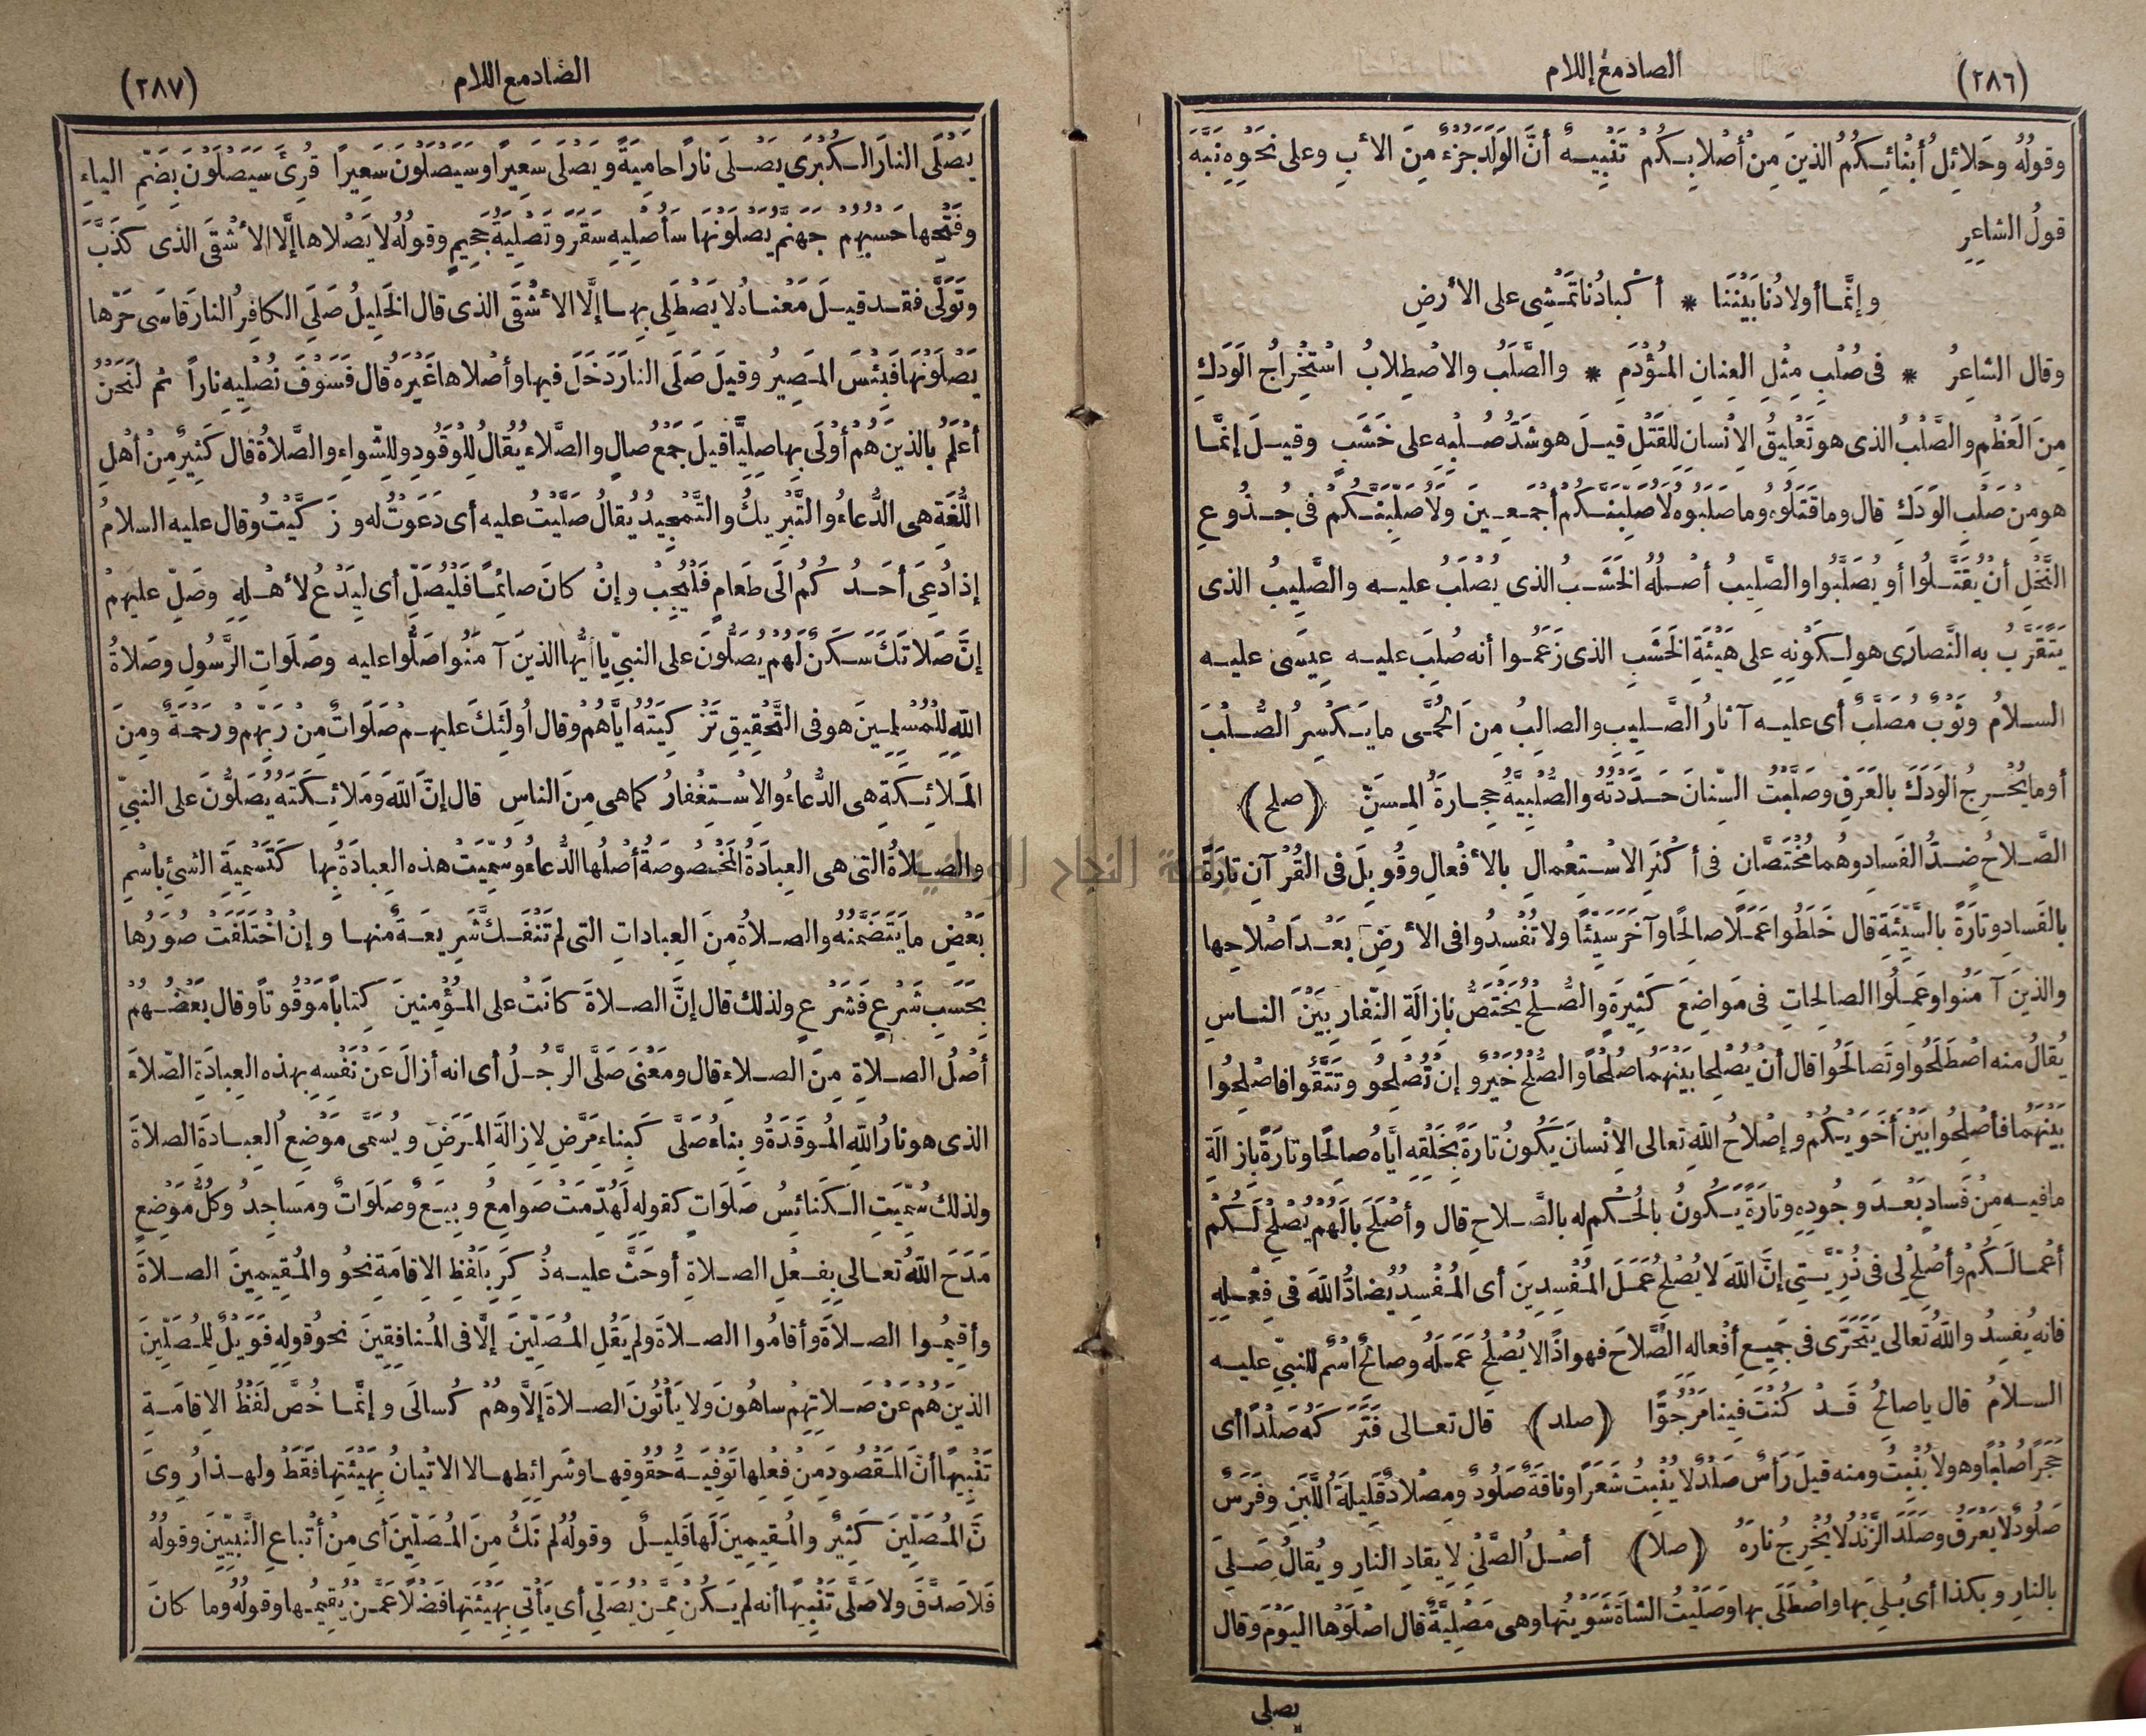 (٢٨٦)
الصاد مع اللام
وقولُهُ وحَلائِلُ أبْنائِكُمُ الذينَ مِنْ أصْلابِكُمْ تَنْبِيهٌ أنَّ الوَلَدَ جُزْءٌ مِنَ الأبِ وعلى نَحْوِهِ نَبَّهَ
قولُ الشاعِرِ
وإنَّما أولادُنا بَيْنَنا * أكْبادُنا تَمْشِى على الأرضِ
وقال الشاعِرُ * فى صُلْبٍ مِثْلِ العِنانِ المُؤْدَمِ * والصَّلَبُ والاصْطِلابُ اسْتِخْراجُ الوَدَكِ
مِنَ العَظْمِ والصَّلْبُ الذى هو تَعْلِيقُ الإنْسانِ للقَتْلِ قيلَ هو شَدُّ صُلْبِهِ على خَشَبٍ وقيلَ إنَّما
هو مِنْ صَلْبِ الوَدَكِ قال وما قَتَلُوهُ وما صَلَبُوهُ لَأُصَلِّبَنَّكُمْ أجْمَعِينَ ولَأُصَلِّبَنَّكُمْ فى جُذُوعِ
النَّخْلِ أنْ يُقَتَّلُوا أو يُصَلَّبُوا والصَّلِيبُ أصْلُهُ الخَشَبُ الذى يُصْلَبُ عليه والصَّلِيبُ الذى
يَتَقَرَّبُ به النَّصارَى هو لِكَوْنِهِ على هَيْئَةِ الخَشَبِ الذى زَعَمُوا أنه صُلِبَ عليه عِيسَى عليه
السلامُ وثَوْبٌ مُصَلَّبٌ أى عليه آثارُ الصَّلِيبِ والصالِبُ مِنَ الحُمَّى ما يَكْسِرُ الصُّلْبَ
أو ما يُخْرِجُ الوَدَكَ بالعَرَقِ وصَلَّبْتُ السِّنانَ حَدَّدْتُهُ والصُّلَّبِيَّةُ حِجارَةُ المِسَنِّ (صلح)
الصَّلاحُ ضِدُّ الفَسادِ وهُما مُخْتَصَّانِ فى أكْثَرِ الاسْتِعْمالِ بالأفْعالِ وقُوبِلَ فى القُرْآنِ تارَةً
بالفَسادِ وتارَةً بالسَّيِّئَةِ قال خَلَطُوا عَمَلًا صالِحًا وآخَرَ سَيِّئًا ولا تُفْسِدُوا فى الأرضِ بَعْدَ اصْلاحِها
والذينَ آمَنُوا وعَمِلُوا الصالِحاتِ فى مَواضِعَ كَثِيرَةٍ والصُّلْحُ يُخْتَصُّ بإزالَةِ النِّفارِ بَيْنَ الناسِ
يُقالُ منه اصْطَلَحُوا وتَصالَحُوا قال أنْ يُصْلِحا بَيْنَهُما صُلْحًا والصُّلْحُ خَيْرٌ وإنْ تُصْلِحُو وتَتَّقُوا فاصْلِحُوا
بَيْنَهُما فأصْلِحُوا بَيْنَ أخَوَيْكُمْ وإصْلاحُ اللهِ تعالى الإنْسانَ يَكُونُ تارَةً بِخَلْقِهِ ايَّاهُ صالِحًا وتارَةً بإزالَةِ
ما فيه مِنْ فَسادٍ بَعْدَ وجُودِهِ وتارَةً يَكُونُ بالحُكْمِ له بالصَّلاحِ قال وأصْلَحَ بالَهُمْ يُصْلِحْ لَكُمْ
أعْمالَكُمْ وأصْلِحْ لى فى ذُرِّيَّتِى إنَّ اللهَ لا يُصْلِحُ عَمَلَ المُفْسِدِينَ أى المُفْسِدُ يُضادُّ اللهَ فى فِعْلِهِ
فانه يُفْسِدُ واللهُ تعالى يَتَحَرَّى فى جَمِيعِ أفْعالِهِ الصَّلاحَ فهو اذًا لا يُصْلِحُ عَمَلَهُ وصالِحٌ اسْمٌ للنبىِّ عليه
السلامُ قال يا صالِحُ قَدْ كُنْتَ فينا مَرْجُوًّا (صلد) قال تعالى فَتَرَكَهُ صَلْدًا أى
حَجَرًا صُلْبًا وهو لا يُنْبِتُ ومنه قيلَ رَأْسٌ صَلْدٌ لا يُنْبِتُ شَعَرًا وناقَةٌ صَلُودٌ ومِصْلادٌ قَلِيلَةُ اللَّبَنِ وفَرَسٌ
صَلُودٌ لا يَعْرَقُ وصَلَدَ الزَّنْدُ لا يُخْرِجُ نارَهُ (صلا) أصْلُ الصَّلْىِ لإيقادِ النارِ ويُقالُ صَلِىَ
بالنارِ وبكذا أى بُلِىَ بها واصْطَلَى بها وصَلَيْتُ الشاةَ شَوَيْتُها وهى مَصْلِيَّةٌ قال اصْلَوْها اليَوْمَ وقال
يصلى
(٢٨٧)
الصاد مع اللام
يَصْلَى النارَ الكُبْرَى يَصْلَى نارًا حامِيَةً ويَصْلَى سَعِيرًا وسَيَصْلَوْنَ سَعِيرًا قُرِئَ سَيَصْلَوْنَ بِضَمِّ الياءِ
وفَتْحِها حَسْبُهُمْ جَهَنَّمُ يَصْلَوْنَها سَأُصْلِيهِ سَقَرَ وتَصْلِيَةُ جَحِيمٍ وقولُهُ لا يَصْلاها إلَّا الأشْقَى الذى كَذَّبَ
وتَوَلَّى فقد قيلَ مَعْناهُ لا يَصْطَلِى بها إلَّا الأشْقَى الذى قال الخَلِيلُ صَلِىَ الكافِرُ النارَ قاسَى حَرَّها
يَصْلَوْنَها فَبِئْسَ المَصِيرُ وقيلَ صَلَى النارَ دَخَلَ فيها وأصْلاها غَيْرَهُ قال فَسَوْفَ نُصْلِيهِ نارًا ثم لَنَحْنُ
أعْلَمُ بالذينَ هُمْ أوْلَى بها صِلِيًّا قيلَ جَمْعُ صالٍ والصَّلاءُ يُقالُ لِلْوَقُودِ وللشِّواءِ والصَّلاةُ قال كَثِيرٌ مِنْ أهْلِ
اللُّغَةِ هى الدُّعاءُ والتَّبْرِيكُ والتَّمْجِيدُ يُقالُ صَلَّيْتُ عليه أى دَعَوْتُ له وزَكَّيْتُ وقال عليه السلامُ
إذا دُعِىَ أحَدُكُمْ الَى طَعامٍ فَلْيُجِبْ وإنْ كانَ صائِمًا فَلْيُصَلِّ أى لِيَدْعُ لأهْلِهِ وصَلِّ عليهمْ
إنَّ صَلاتَكَ سَكَنٌ لَهُمْ يُصَلُّونَ على النبىِّ يا أيُّها الذينَ آمَنُوا صَلُّوا عليه وصَلَواتِ الرَّسُولِ وصَلاةُ
اللهِ لِلْمُسْلِمِينَ هو فى التَّحْقِيقِ تَزْكِيَتُهُ ايَّاهُمْ وقال أُولَئِكَ عليهم صَلَواتٌ مِنْ رَبِّهِمْ ورَحْمَةٌ ومِنَ
المَلائِكَةِ هى الدُّعاءُ والاسْتِغْفارُ كما هى مِنَ الناسِ قال إنَّ اللهَ ومَلائِكَتَهُ يُصَلُّونَ على النبىِّ
والصلاةُ التى هى العِبادَةُ المَخْصُوصَةُ أصْلُها الدُّعاءُ وسُمِّيَتْ هذه العِبادَةُ بها كَتَسْمِيَةِ الشئِ باسْمِ
بَعْضِ ما يَتَضَمَّنُهُ والصلاةُ مِنَ العِباداتِ التى لم تَنْفَكَّ شَرِيعَةٌ منها وإنْ اخْتَلَفَتْ صُوَرُها
بِحَسَبِ شَرْعٍ فَشَرْعٍ ولذلك قال إنَّ الصلاةَ كانَتْ على المُؤْمِنِينَ كِتابًا مَوْقُوتًا وقال بَعْضُهُمْ
أصْلُ الصلاةِ مِنَ الصلاءِ قال ومَعْنَى صَلَّى الرَّجُلُ أى انه أزالَ عَنْ نَفْسِهِ بهذه العِبادَةِ الصَّلاءَ
الذى هو نارُ اللهِ المُوقَدَةُ وبِناءُ صَلَّى كَبِناءِ مَرَّضَ لإزالَةِ المَرَضِ ويُسَمَّى مَوْضِعُ العِبادَةِ الصلاةَ
ولذلك سُمِّيَتِ الكَنائِسُ صَلَواتٍ كقولِهِ لَهُدِّمَتْ صَوامِعُ وبِيَعٌ وصَلَواتٌ ومَساجِدُ وكُلُّ مَوْضِعٍ
مَدَحَ اللهُ تعالى بِفِعْلِ الصلاةِ أو حَثَّ عليه ذُكِرَ بِلَفْظِ الإقامَةِ نحوُ والمُقِيمِينَ الصلاةَ
وأقِيمُوا الصلاةَ وأقامُوا الصلاةَ ولم يَقُلِ المُصَلِّينَ إلَّا فى المُنافِقِينَ نحوُ قولِهِ فَوَيْلٌ لِلْمُصَلِّينَ
الذينَ هُمْ عَنْ صَلاتِهِمْ ساهُونَ ولا يَأْتُونَ الصلاةَ إلَّا وهُمْ كُسالَى وإنَّما خُصَّ لَفْظُ الإقامَةِ
تَنْبِيهًا أنَّ المَقْصُودَ مِنْ فِعْلِها تَوْفِيَةُ حُقُوقِها وشَرائِطِها لا الاتْيانُ بِهَيْئَتِها فَقَطْ ولهذا رُوِىَ
نَّ المُصَلِّينَ كَثِيرٌ والمُقِيمِينَ لَها قَلِيلٌ وقولُهُ لم نَكُ مِنَ المُصَلِّينَ أى مِنْ أتْباعِ النَّبِيِّينَ وقولُهُ
فَلا صَدَّقَ ولا صَلَّى تَنْبِيهًا أنه لم يَكُنْ مِمَّنْ يُصَلِّى أى يَأْتِى بِهَيْئَتِها فَضْلًا عَمَّنْ يُقِيمُها وقولُهُ وما كانَ